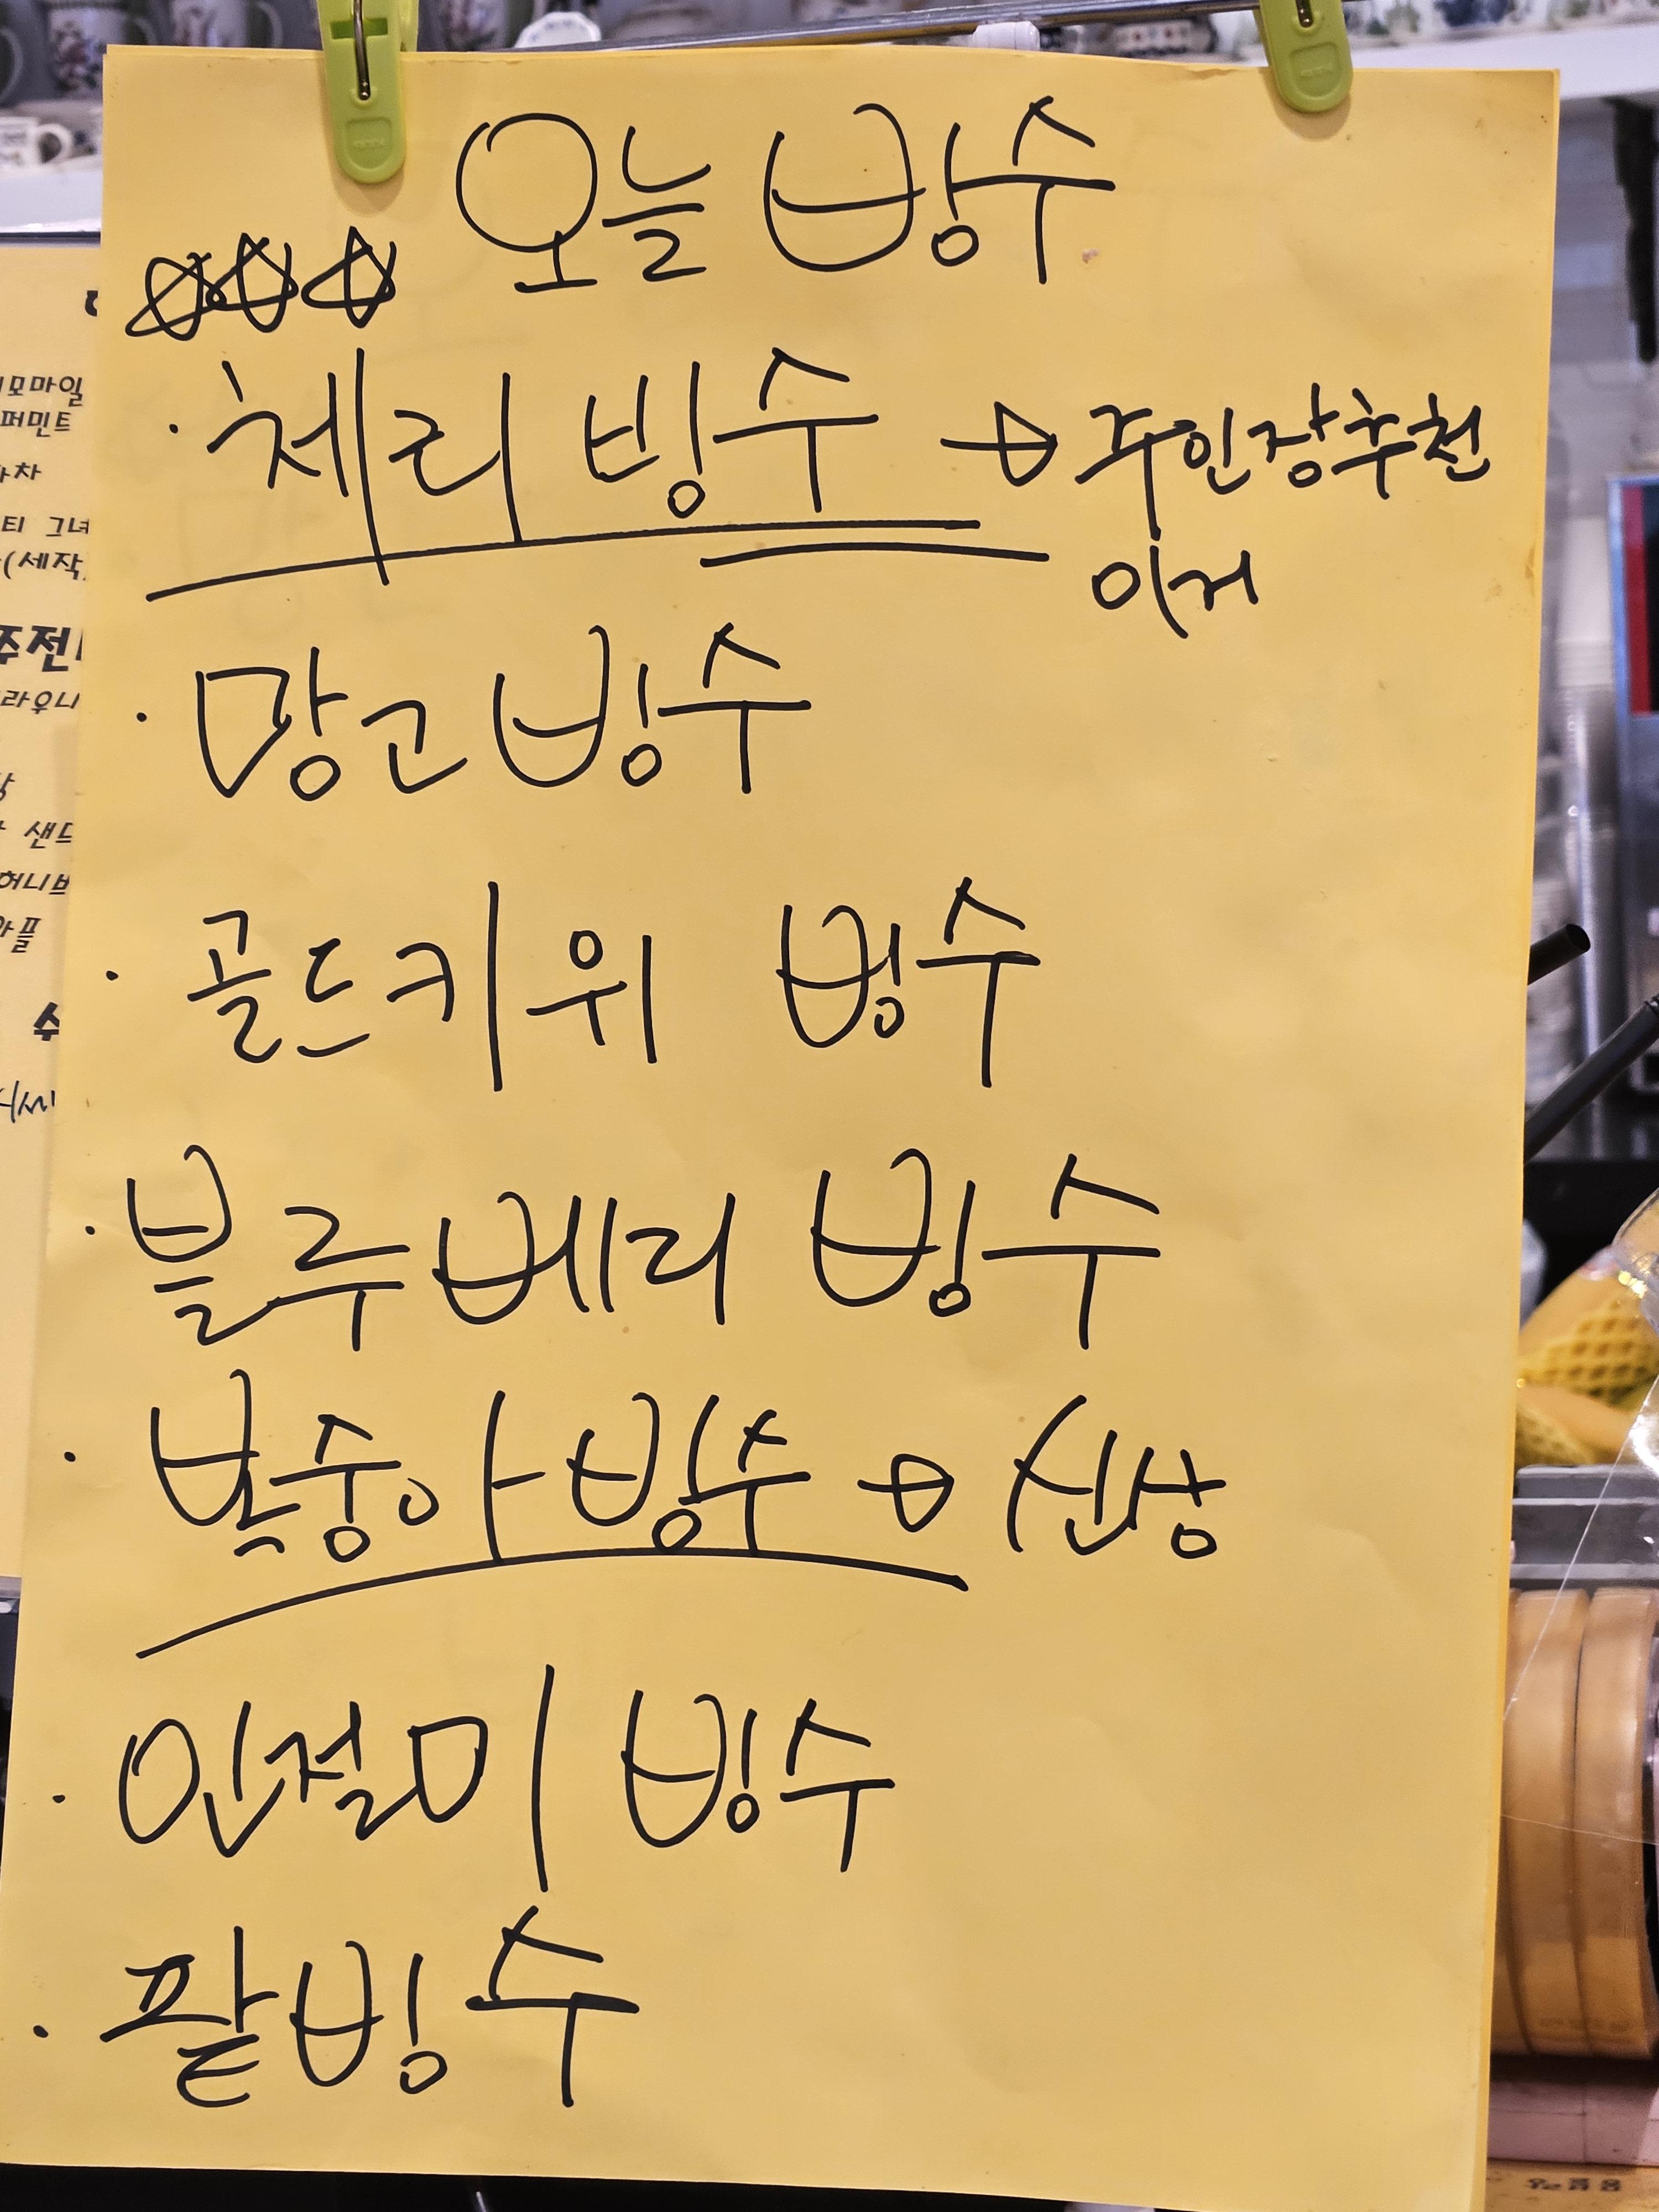 오늘 빙수
체리 빙수 → 주인장추천
이거
망고빙수
골드키위 빙수
블루베리 빙수
복숭아 빙수 → 신상
인절미 빙수
팥빙수
모마일
퍼민트
차
티 그녀
(세작)
주전
라우니
샌드
허니브
와플
수